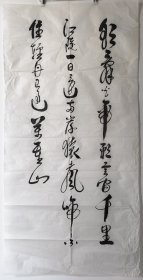 朝辞白帝彩云间千里
江陵一日还两岸猿声啼不
住轻舟已过万重山